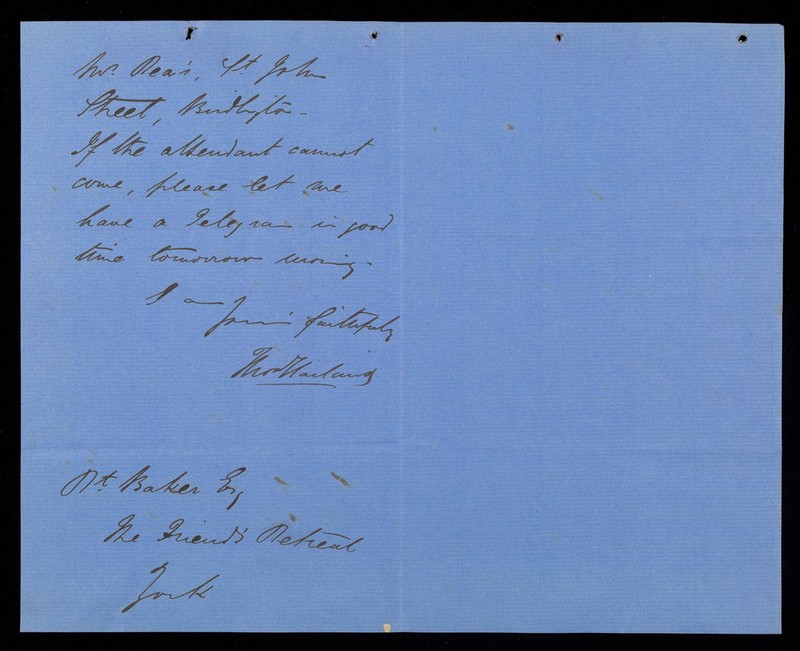 Mr. Rea's, St. John
Street, Bridlington -
If the attendant cannot
come, please let me
have a Telegram in good
time tomorrow morning.
I am
Yours faithfully
Thos Harland
Rt. Baker Esq
The Friend's Retreat
York